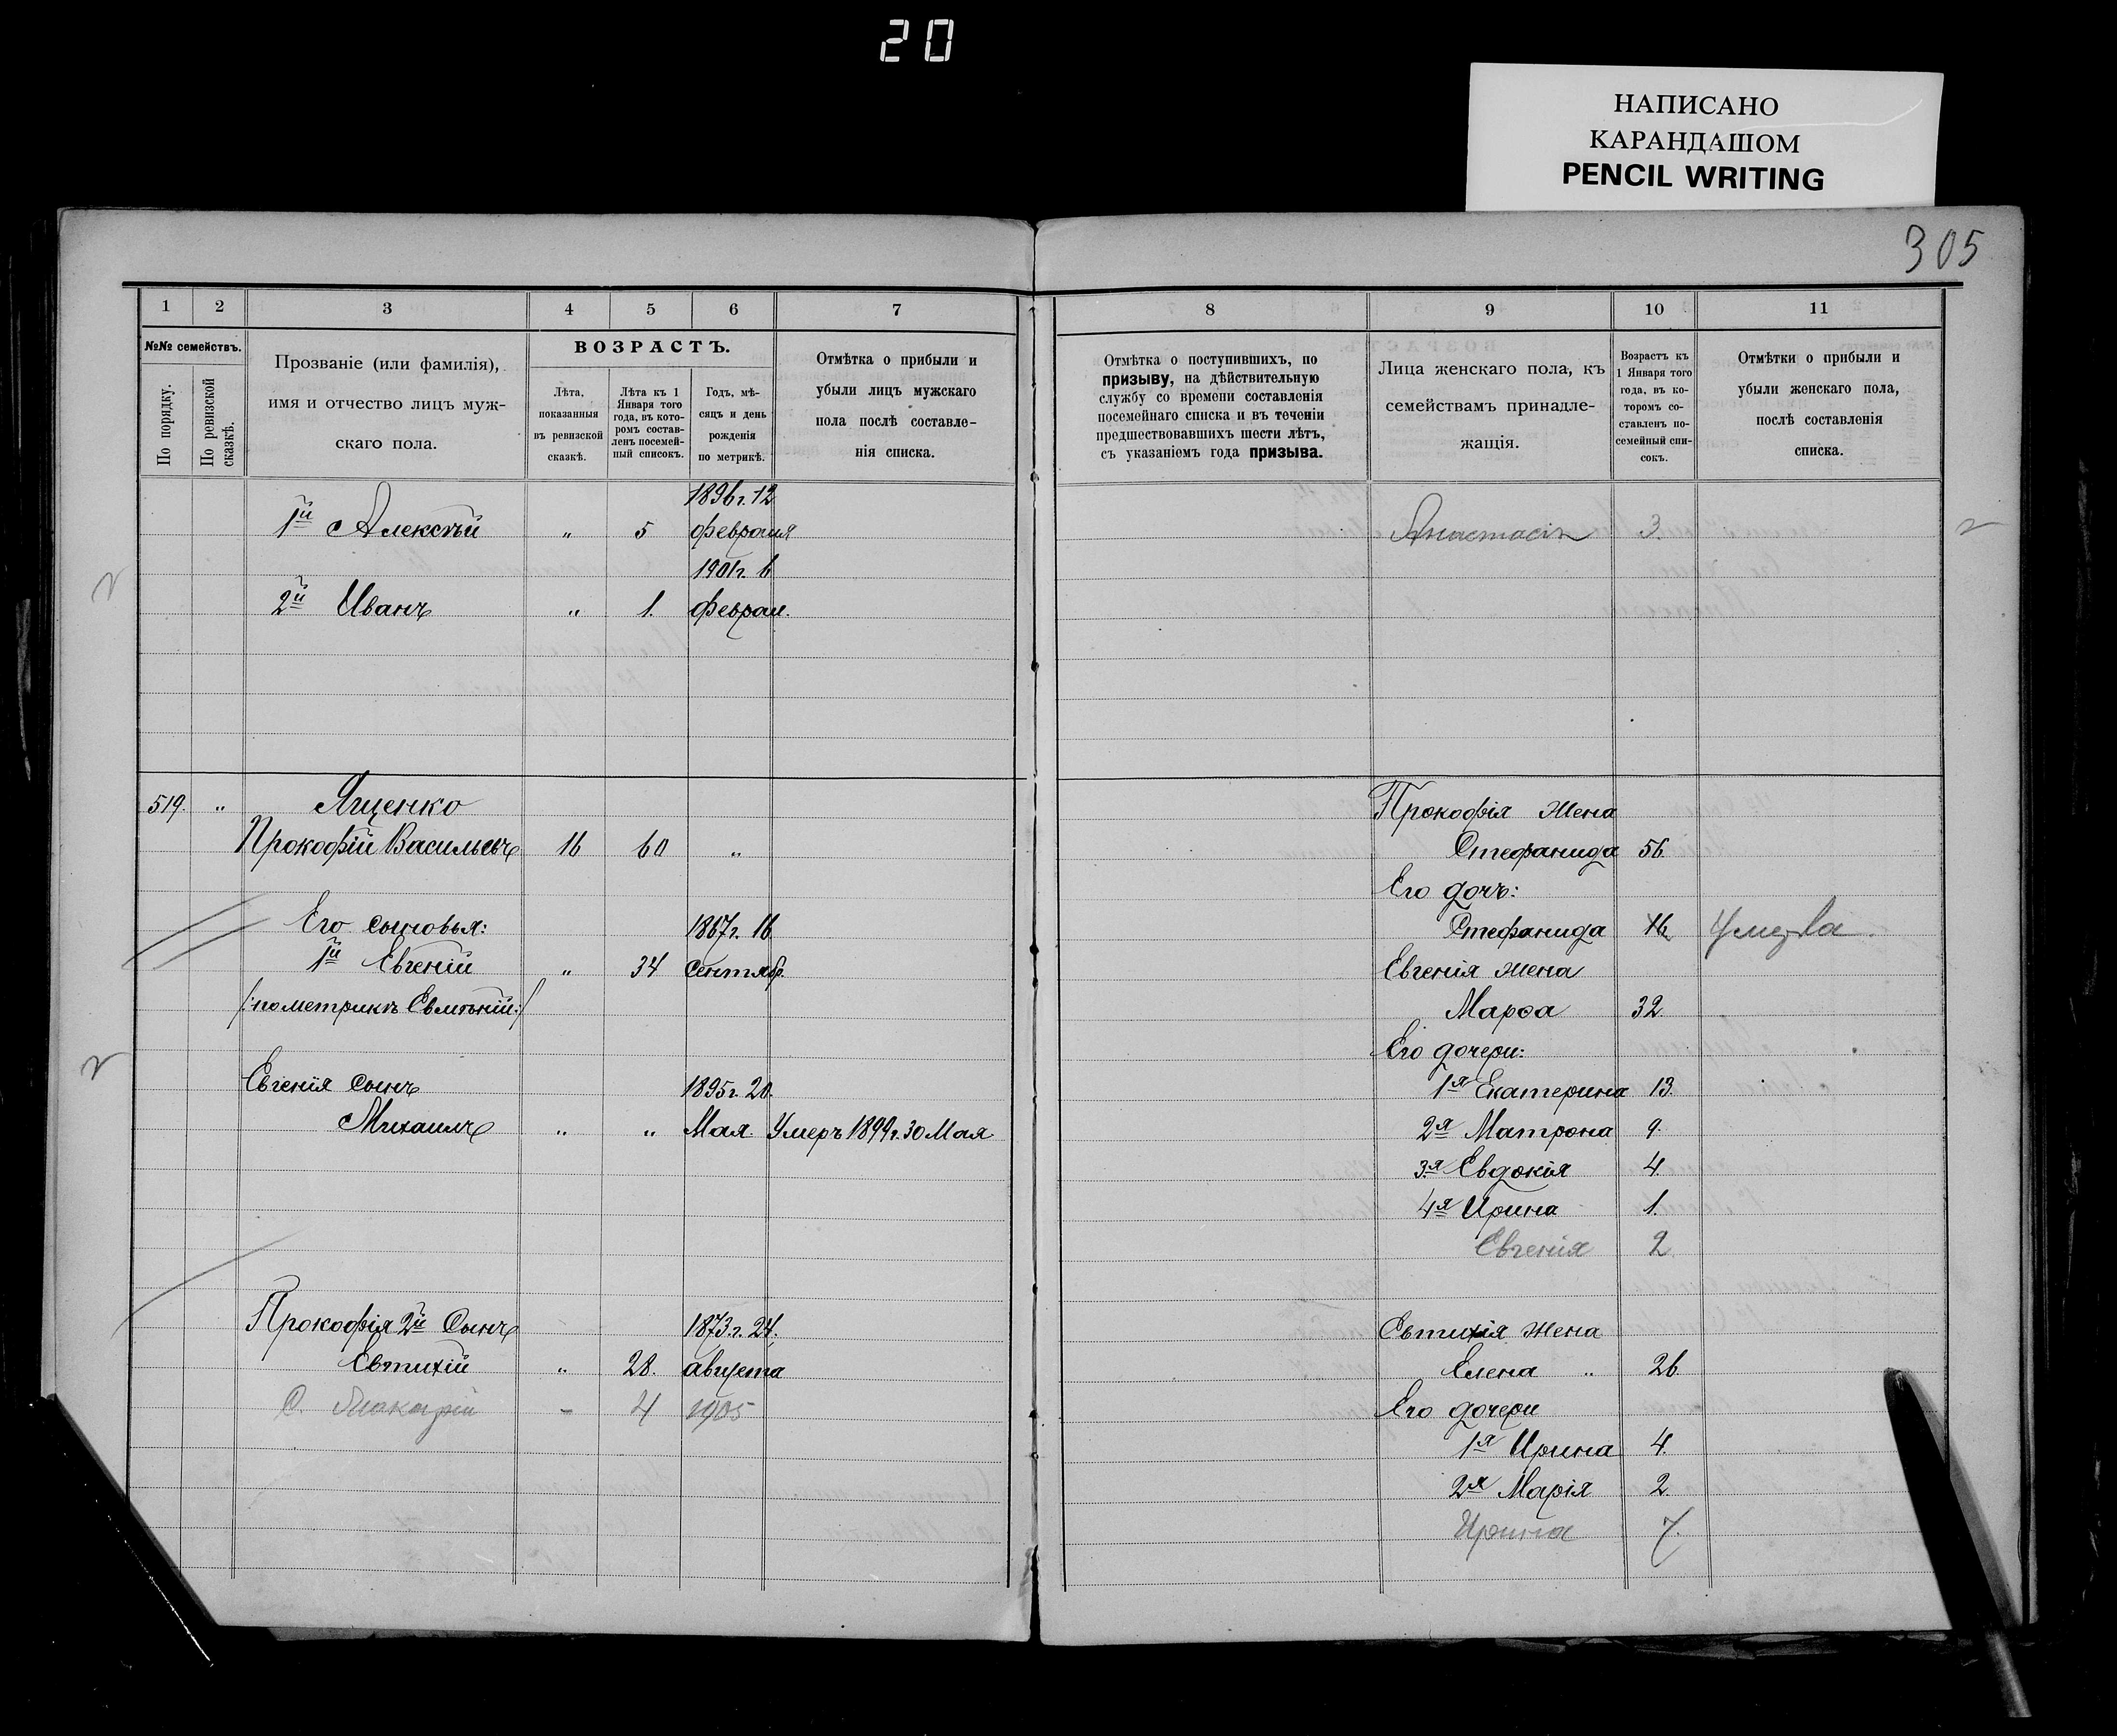 20
НАПИСАНО
КАРАНДАШОМ
PENCIL WRITING
305
1 2 3 4 5 6 7
№№ семействъ.
По порядку.
По ревизской сказкѣ.
Прозваніе (или фамилія),
имя и отчество лицъ муж-
скаго пола.
ВОЗРАСТЪ.
Лѣта,
показанныя
въ ревизской
сказкѣ.
Лѣта къ 1
Января того
года, въ кото-
ромъ состав-
ленъ посемей-
ный списокъ.
Годъ, мѣ-
сяцъ и день
рожденія
по метрикѣ.
Отмѣтка о прибыли и
убыли лицъ мужскаго
пола послѣ составле-
нія списка.
1896 г. 12
1й Алексѣй " 5 февраля
1901 г. 6
2й Иванъ " 1. феврал.
519. " Ященко
Прокофій Васильевъ 16 60 "
Его сыновья: 1867 г. 16
1й Евгеній " 34 сентяб.
/:по метрикѣ Евменій:/
Евгенія сынъ 1895 г. 20.
Михаилъ " " Мая Умеръ 1899 г. 30 Мая
Прокофія 2й Сынъ 1873 г. 24.
Евтихій " 28. августа
С. Макарій - 4 1905
8 9 10 11
Отмѣтка о поступившихъ, по
призыву, на дѣйствительную
службу со времени составленія
посемейнаго списка и въ теченіи
предшествовавшихъ шести лѣтъ,
съ указаніемъ года призыва.
Лица женскаго пола, къ
семействамъ принадле-
жащія.
Возрастъ къ
1 Января того
года, въ ко-
торомъ со-
ставленъ по-
семейный спи-
сокъ.
Отмѣтки о прибыли и
убыли женскаго пола,
послѣ составленія
списка.
Анастасія 3.
Прокофія жена
Стефанида 56.
Его дочь:
Стефанида 16 Умерла.
Евгенія жена
Марѳа 32
Его дочери:
1я Екатерина 13.
2я Матрона 9.
3я Евдокія 4.
4я Ирина 1.
Евгенія 2
Евтихія жена
Елена " 26
Его дочери
1я Ирина 4.
2я Марія 2.
Ирина 7.